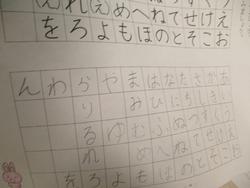 えお
けこ
せそ
てと
ねの
へほ
めも
(え)よ
れろ
(え)を
あいうえお
かきくけこ
さしすせそ
たちつてと
なにぬねの
はひふへほ
まみむめも
やゆよ
らりるれろ
わを
ん